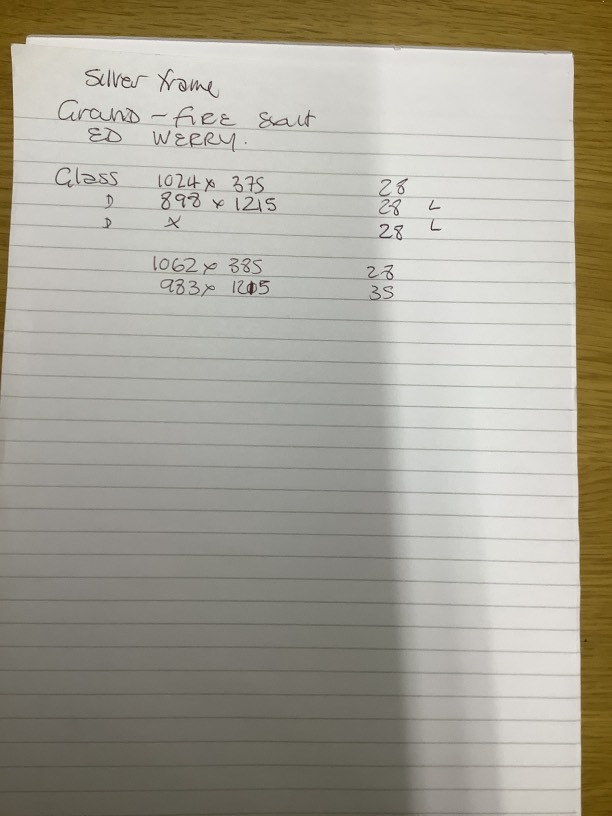 Silver frame
Grand - FIRE Exit
ED WERRY.
Glass 1024 x 375 28
D 898 x 1215 28 L
D x 28 L
1062 x 385 28
983 x 1215 35